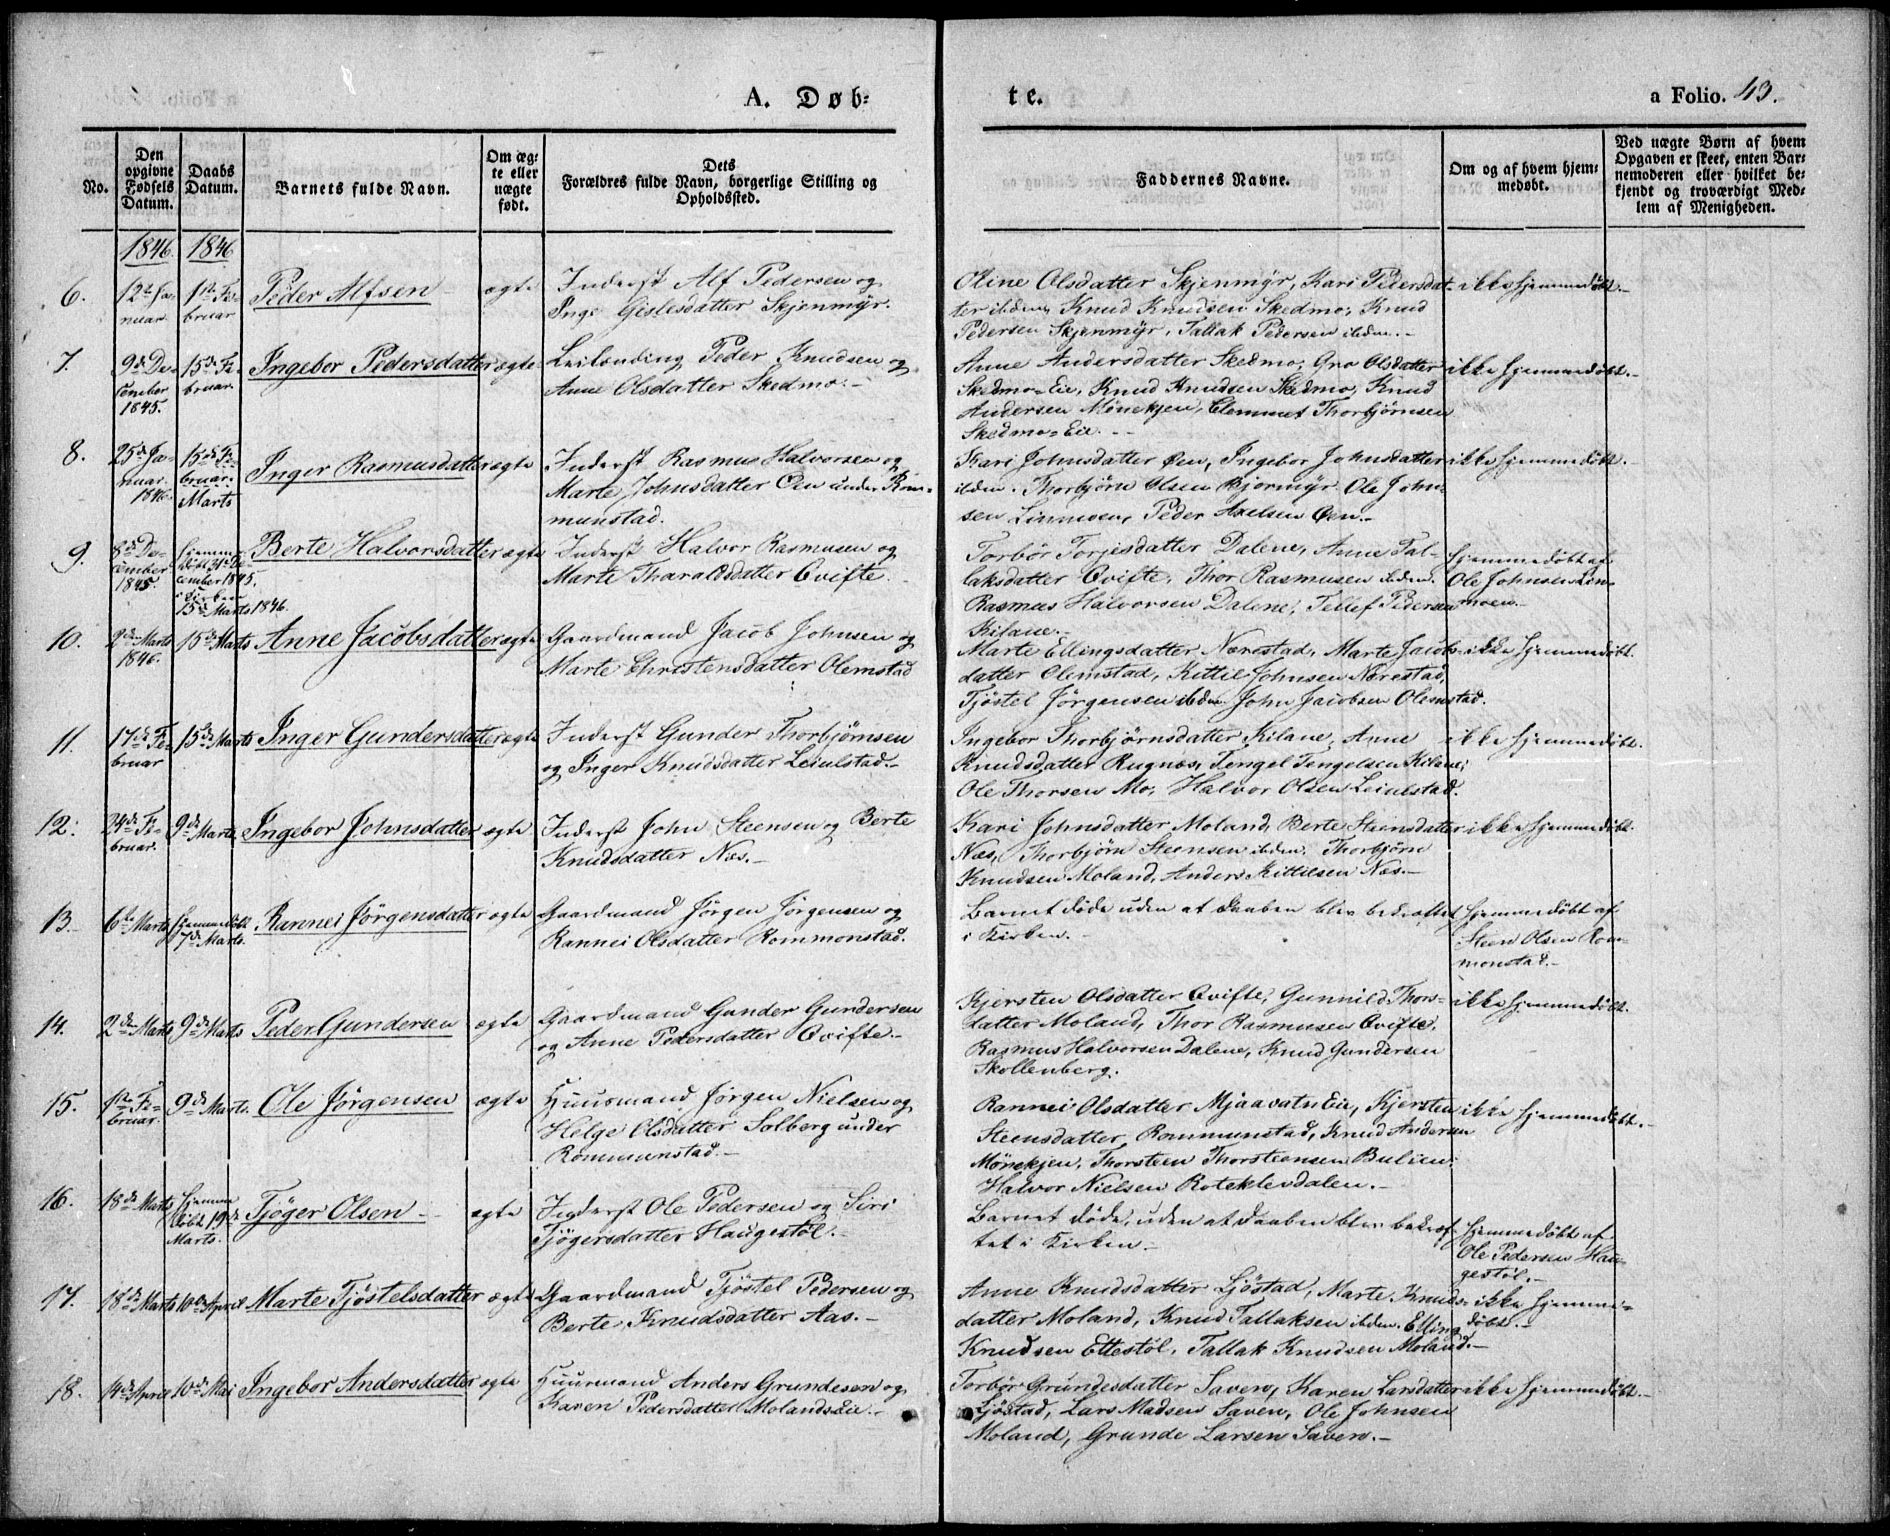 A. Døb=
te.
a Folio. 43.
No.
Den
opgivne
Fødsels
Datum.
Daabs
Datum.
Barnets fulde Navn.
Om æg=
te eller
uægte
født.
Dets
Forældres fulde Navn, borgerlige Stilling og
Opholdssted.
Faddernes Navne.
Om og af hvem hjem=
medøbt.
Ved uægte Børn af hvem
Opgaven er skeet, enten Bar=
nemoderen eller hvilket be=
kjendt og troværdigt Med=
lem af Menigheden.
1846. 1846
6.
12te Ja-
nuar.
1ste Fe-
bruar
Peder Alfsen
ægte
Inderst Alf Pedersen og
Inge Gislesdatter Skjenmyr.
Oline Olsdatter Skjenmyr, Kari Pedersdat-
ter ibdm, Knud Knudsen Skedmo, Knud
Pedersen Skjenmyr, Tallak Pedersen ibdm.-
ikke hjemmedøbt.-
7.
9de De-
cember
1845.
15de Fe-
bruar.
Ingebor Pedersdatter
ægte
Leilænding Peder Knudsen og
Anne Olsdatter Skedmo.-
Anne Andersdatter Skedmo, Gro Olsdatter
Skedmo-Eie, Knud Knudsen Skedmo, Knud
Andersen Mönekjen, Clemmet Thorbjørnsen
Skedmo=Eie.--
ikke hjemmedøbt.-
8.
25de Ja-
nuar.
1846.
15de Fe-
bruar.
Marts
Inger Rasmusdatter
ægte
Inderst Rasmus Halvorsen og
Marte Johnsdatter Øen under Rom-
munstad.
Kari Johnsdatter Øen, Ingebor Johnsdatter
ibdm. Thorbjørn Olsen Bjormyr. Ole John-
sen Linmoen, Peder Axelsen Øen.-
ikke hjemmedøbt.-
9.
8de De-
cember
1845.
Hjemme-
døbt 31te De-
cember 1845.
i Kirken
15de Marts 1846.
Berte Halvorsdatter
ægte
Inderst Halvor Rasmusen og
Marte Tharaldsdatter Qvifte.
Torbör Torjesdatter Dalene, Anne Tal-
laksdatter Qvifte, Thor Rasmusen ibdm.
Rasmus Halvorsen Dalene, Tellef Pedersen
Kilane.-
Hjemmedøbt af
Ole Johnsen Lin-
moen.-
10.
2den Marts
1846.
15de Marts
Anne Jacobsdatter
ægte
Gaardmand Jacob Johnsen og
Marte Christensdatter Olemstad
Marte Ellingsdatter Nærestad, Marte Jacobs-
datter Olemstad, Kittil Johnsen Nærestad,
Tjöstel Jørgensen ibdm. John Jacobsen Olemstad.
ikke hjemmedøbt.
11.
17de Fe-
bruar
15de Marts
Inger Gundersdatter
ægte
Inderst Gunder Thorbjørnsen
og Inger Knudsdatter Leiulstad.-
Ingebor Thorbjørnsdatter Kilane, Anne
Knudsdatter Rugnæs, Tengel Tengelsen Kilane,
Ole Thorsen Mo, Halvor Olsen Leiulstad.
ikke hjemmedøbt.
12.
24de Fe-
bruar.
9de Marts
Ingebor Johnsdatter
ægte
Inderst John Steensen og Berte
Knudsdatter Næs.-
Kari Johnsdatter Moland, Berte Steensdatter
Næs, Thorbjørn Steensen ibdm. Thorbjørn
Knudsen Moland, Anders Kittilsen Næs.-
ikke hjemmedøbt.
13.
6te Marts
Hjemmedøbt
7de Marts.
Rannei Jörgensdatter
ægte
Gaardmand Jörgen Jörgensen og
Rannei Olsdatter Rommonstad.
Barnet døde uden at Daaben blev bekræftet
i Kirken.-
Hjemmedøbt af
Steen Olsen Rom-
monstad.-
14.
2den Marts
9de Marts
Peder Gundersen
ægte
Gaardmand Gunder Gundersen
og Anne Pedersdatter Qvifte.-
Kjersten Olsdatter Qvifte, Gunnild Thors-
datter Moland, Thor Rasmusen Qvifte,
Rasmus Halvorsen Dalene, Knud Gundersen
Skollenberg.
ikke hjemmedøbt.
15.
1ste Fe-
bruar.
9de Marts.
Ole Jörgensen
ægte
Huusmand Jørgen Nielsen og
Helge Olsdatter Solberg under
Rommunstad.-
Rannei Olsdatter Mjaavatn Eie, Kjersten
Steensdatter Rommunstad, Knud Andersen
Mönekjen, Thorsteen Thorsteensen Bulien,
Halvor Nielsen Roteklevdalen.-
ikke hjemmedøbt.-
16.
18de Marts
Hjemme
døbt 19de
Marts.
Tjöger Olsen-
ægte
Inderst Ole Pedersen og Siri
Tjögersdatter Haugestöl.-
Barnet døde, uden at Daaben blev bekræf-
tet i Kirken.-
Hjemmedøbt af
Ole Pedersen Hau-
gestöl.-
17.
18de Marts
10de April
Marte Tjöstelsdatter
ægte
Gaardmand Tjöstel Pedersen og
Berte Knudsdatter Aas.-
Anne Knudsdatter Ljöstad, Marte Knuds-
datter Moland, Knud Tallaksen ibdm. Elling
Knudsen Ettestöl, Tallak Knudsen Moland.-
ikke hjemme-
døbt.-
18.
14de April
10de Mai
Ingebor Andersdatter
ægte
Huusmand Anders Grundesen og
Karen Pedersdatter MolandsEie.-
Torbör Grundesdatter Saven, Karen Larsdatter
Ljöstad, Lars Madsen Saven, Ole Johnsen
Moland, Grunde Larsen Saven.-
ikke hjemmedøbt.-